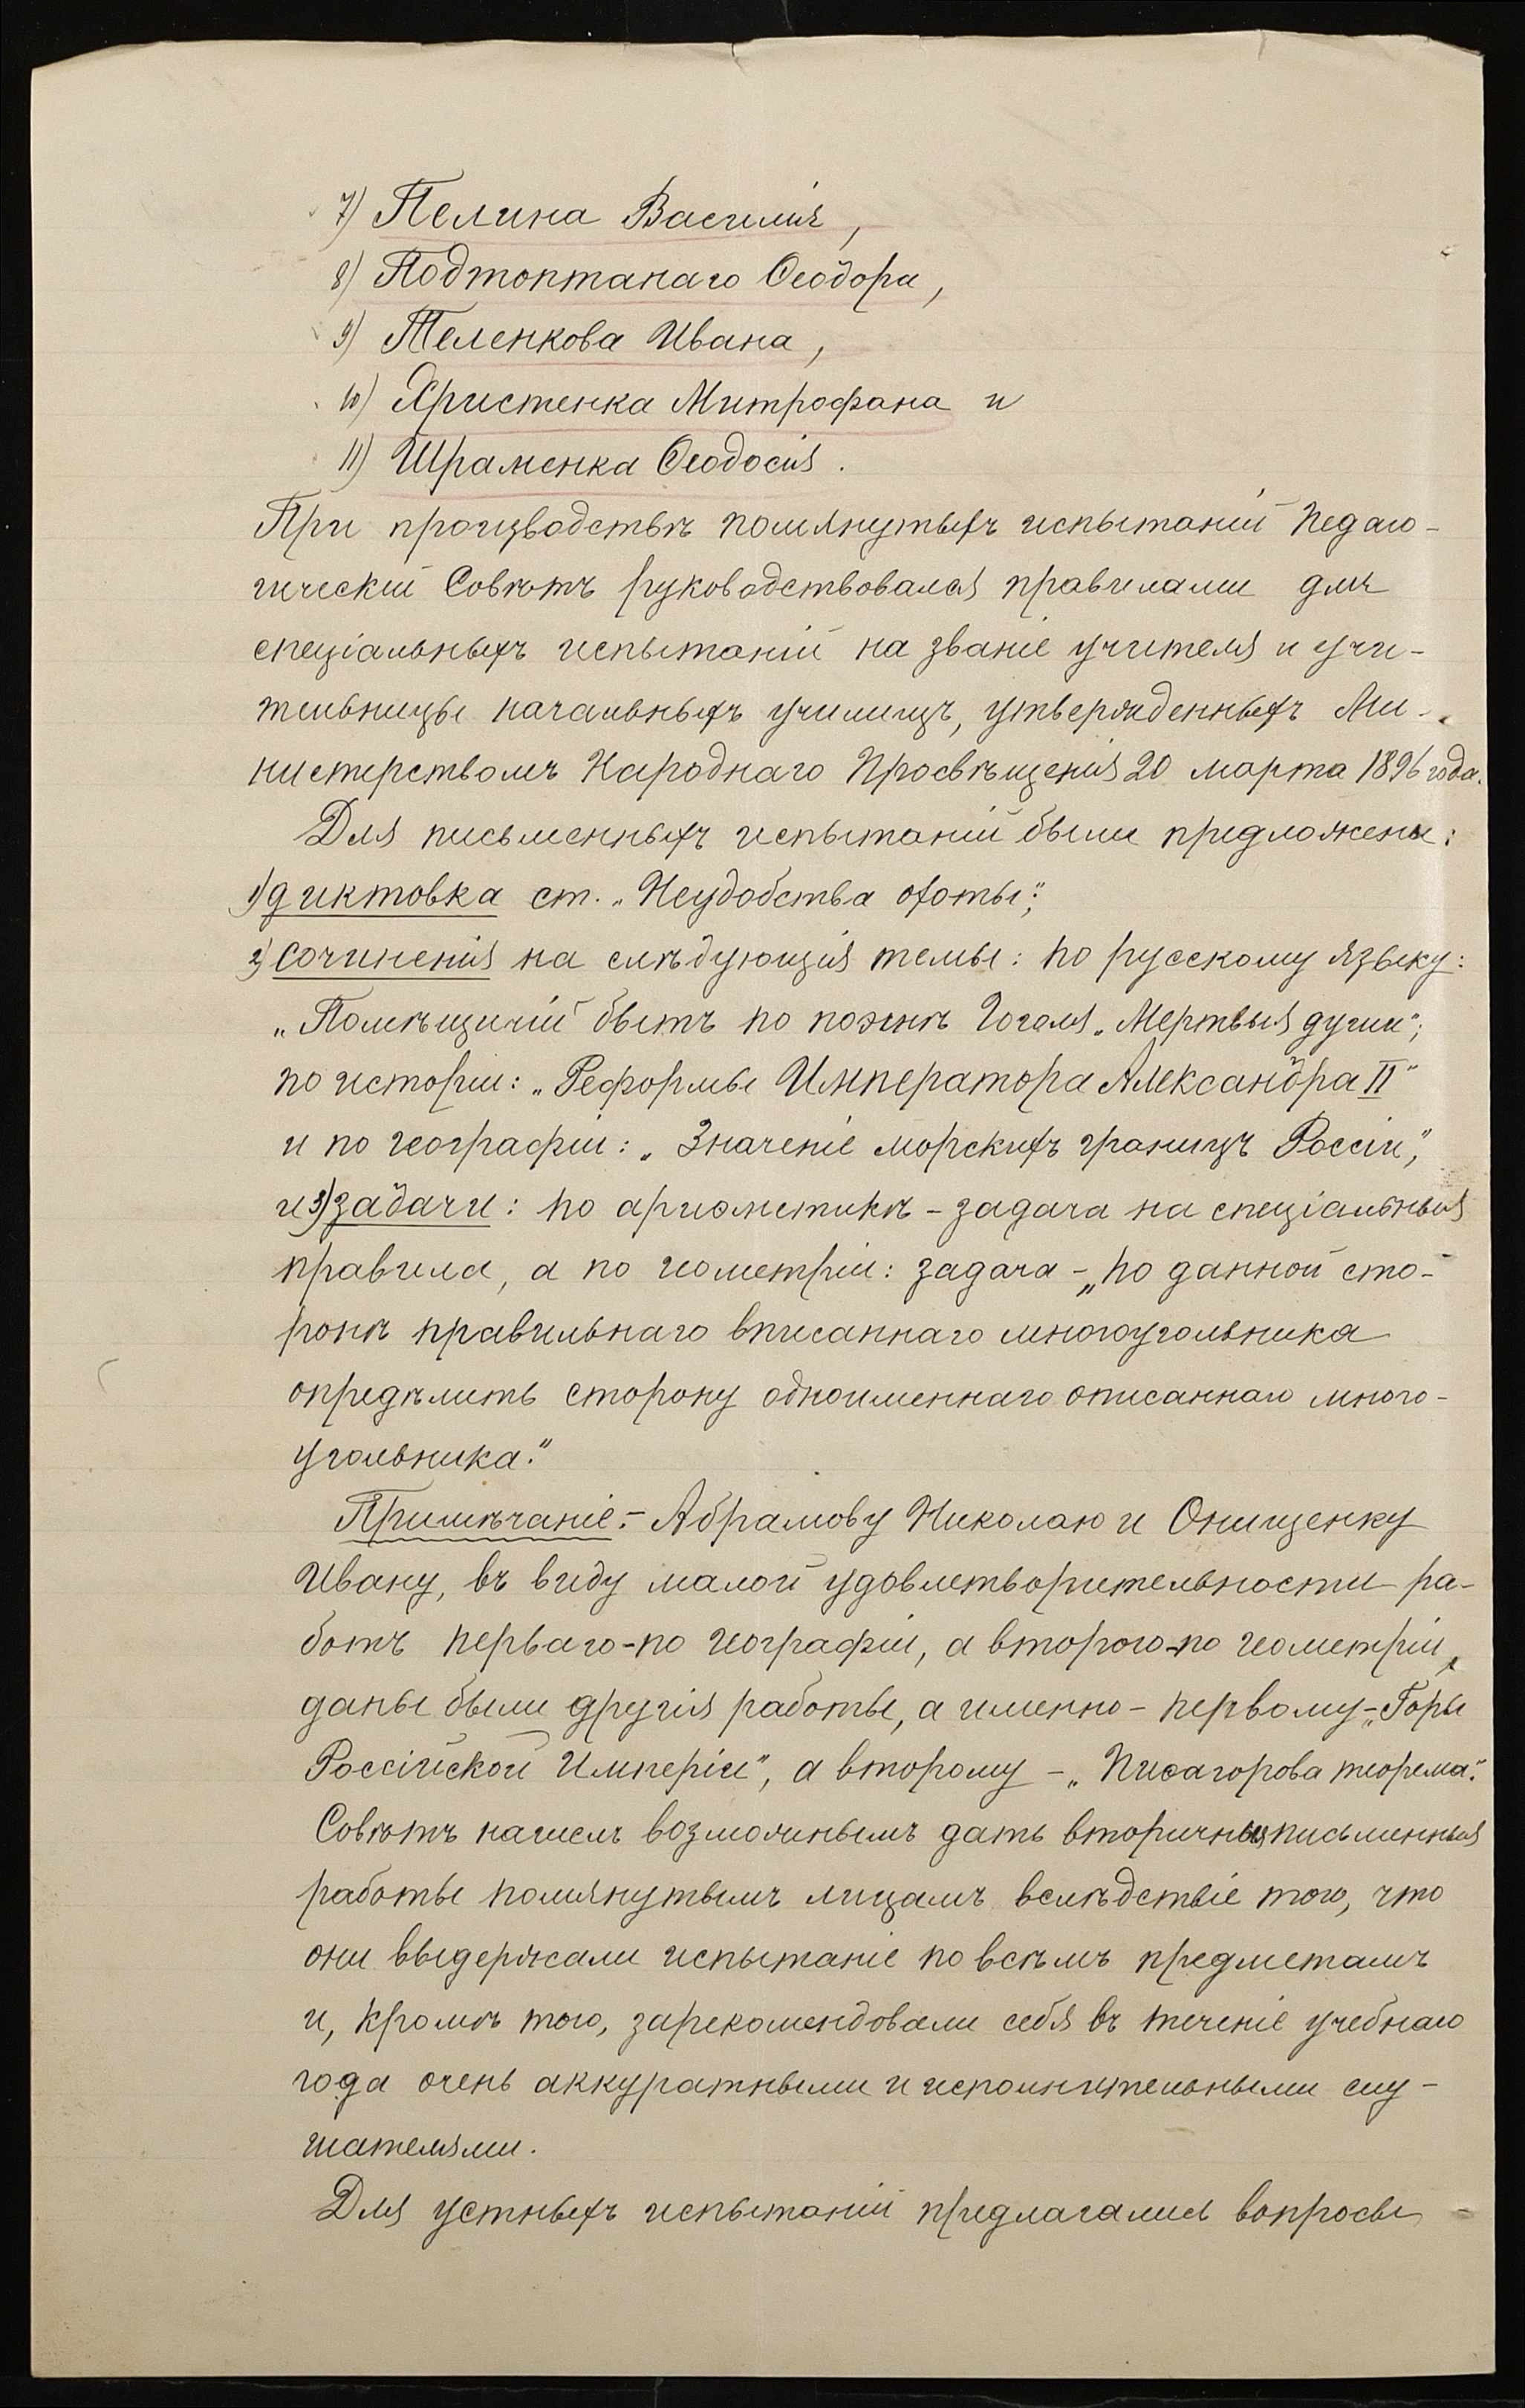 7) Пелина Василія,
8) Подтоптанаго Ѳеодора,
9) Теленкова Ивана,
10) Христенка Митрофана и
11) Шраменка Ѳеодосія.
При производствѣ помянутыхъ испытаній Педаго-
гическій Совѣтъ руководствовался правилами для
спеціальныхъ испытаній на званіе учителя и учи-
тельницы начальныхъ училищъ, утвержденныхъ Ми-
нистерствомъ Народнаго Просвѣщенія 20 марта 1896 года.
Для письменныхъ испытаній были предложены:
1) диктовка ст. „Неудобства охоты";
2) сочиненія на слѣдующія темы: по русскому языку:
„Помѣщичій бытъ по поэмѣ Гоголя „Мертвыя души";
по исторіи: „Реформы Императора Александра II"
и по географіи: „Значеніе морскихъ границъ Россіи",
и 3) задачи: по ариѳметикѣ - задача на спеціальныя
правила, а по геометріи: задача - „по данной сто-
ронѣ правильнаго вписаннаго многоугольника
опредѣлить сторону одноименнаго описаннаго много-
угольника."
Примѣчаніе: - Абрамову Николаю и Онищенку
Ивану, въ виду малой удовлетворительности ра-
ботъ перваго - по географіи, а второго - по геометріи,
даны были другія работы, а именно - первому - „Горы
Россійской Имперіи", а второму - „Пиѳагорова теорема".
Совѣтъ нашелъ возможнымъ дать вторичныя письменныя
работы помянутымъ лицамъ вслѣдствіе того, что
они выдержали испытаніе по всѣмъ предметамъ
и, кромѣ того, зарекомендовали себя въ теченіе учебнаго
года очень аккуратными и исполнительными слу-
шателями.
Для устныхъ испытаній предлагались вопросы